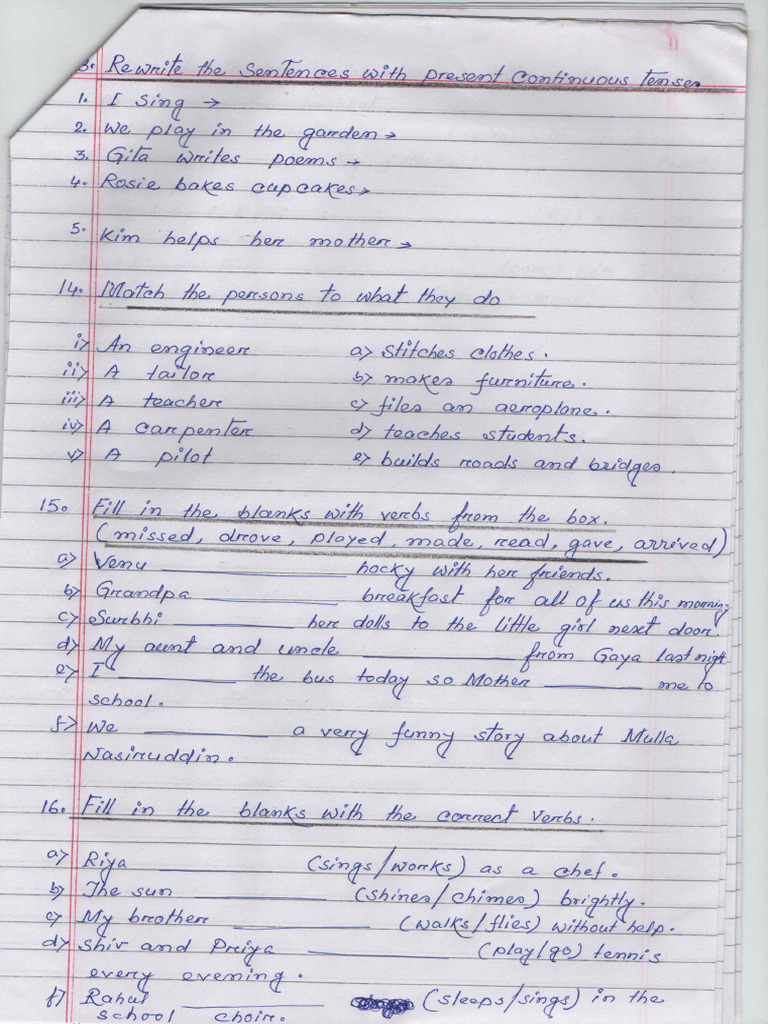 3. Rewrite the sentences with present continuous tense.
1. I sing →
2. We play in the garden →
3. Gita writes poems →
4. Rosie bakes cupcakes →
5. Kim helps her mother →
14. Match the persons to what they do
i) An engineer a) stitches clothes.
ii) A tailor b) makes furniture.
iii) A teacher c) flies an aeroplane.
iv) A carpenter d) teaches students.
v) A pilot e) builds roads and bridges.
15. Fill in the blanks with verbs from the box.
(missed, drove, played, made, read, gave, arrived)
a) Venu ____________ hocky with her friends.
b) Grandpa ____________ breakfast for all of us this morning
c) Surbhi ____________ her dolls to the little girl next door.
d) My aunt and uncle ____________ from Gaya last night
e) I ____________ the bus today so Mother ____________ me to
school.
f) We ____________ a very funny story about Mulla
Nasiruddin.
16. Fill in the blanks with the correct verbs.
a) Riya ____________ (sings/works) as a chef.
b) The sun ____________ (shines/chimes) brightly.
c) My brother ____________ (walks/flies) without help.
d) Shiv and Priya ____________ (play/go) tennis
every evening.
f) Rahul ____________ (sleeps/sings) in the
school choir.